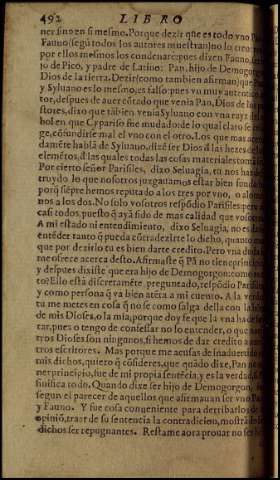 492 LIBRO
ner sino en si mesmo. Porque dezir que es todo vno Pan y
Fauno (segũ todos los autores muestran) no lo creo, que
por ellos mesmos los condenare: pues dizen Fauno, ser hi-
jo de Pico, y padre de Latino: Pan, hijo de Demogorgon
Dios de la tierra. Dezir (como tambien afirman) que Pan
y Syluano es lo mesmo, es falso: pues vn muy
tor, despues de auer cõtado que venia Pan, Dios de los pa-
stores, dixo que tãbien venia Syluano con vna raya de
bol en que Cypariso fue mudado: de lo qual claro se coli-
ge, cõfundirse mal el vno con el otro. Los que mas
damẽte hablã de Syluano, dizẽ ser Dios d' las hezes de los
elemẽtos, d' las quales todas las cosas materiales
Por cierto señor Parisiles, dixo Seluagia, tu nos has des-
truydo. lo que nosotros juzgauamos estar bien fundado,
porq̃ siẽpre hemos reputado a los tres por vno, o a lo me-
nos a los dos. No solo vosotros respõdio Parisiles, pero
casi todos, puesto q̃ ayã sido de mas calidad que vosotros.
A mi estado ni entendimiento, dixo Seluagia, no es da
entẽder tanto q̃ pueda cõtradezirte lo dicho, quanto mas
que por dezirlo tu es bien darte credito. Pero vna duda
me ofrece acerca desto. Afirmaste q̃ Pã no tiene principio
y despues dixiste que era hijo de Demogorgon: como es
to? Ello està discretamẽte preguntado, respõdio Parisiles
y como persona q̃ va bien atẽta a mi cuento. A la verdad
tu me notes en cosa q̃ no se como salga della con la
de mis Dioses, o la mia, porque doy fe que es la verdad
tar, pues o tengo de confessar no lo entender, o que nues
tros Dioses son ningunos, si hemos de dar credito a nues
tros escritores. Mas porque me acusas de inaduertido en
mis dichos, quiero q̃ cõsideres, que quãdo dixe, Pan no te-
ner principio, fue de mi propia sentẽcia, y es la vna
sinifica todo. Quando dixe ser hijo de Demogorgon, fue
segun el parecer de aquellos que afirmauan ser vno Pan
y Fauno. Y fue cosa conueniente para derribarlos de su
opiniõ, traer de su sentencia la contradicion, mostrãdo los
dichos ser repugnantes. Restame aora prouar no ser